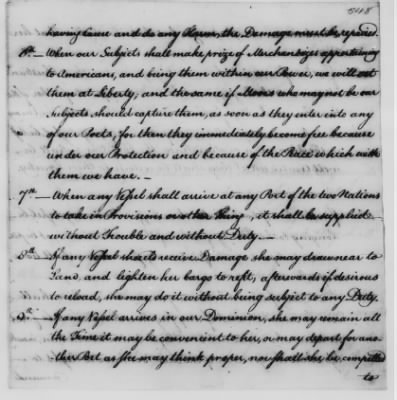 548
having Cause and do any Harm, the Damage must be repaired.
6th— When our Subjects shall make prize of Merchandizes appertaining
to Americans, and being them within our Power, we will set
them at Liberty; and the same if Moors who may not be our
Subjects should capture them, as soon as they enter into any
of our Ports, for then they immediately become free because
under our Protection and because of the Peace which with
them we have.—
7th— When any Vessel shall arrive at any Port of the two Nations
to take in Provisions or other Thing, it shall be supplied
without Trouble and without Duty.—
8th If any Vessel receive Damage she may draw near to
Land, and lighten her Cargo to refit, afterwards if desirous
to reload, she may do it without being subject to any Duty.
9th If any Vessel arrives in our Dominion, she may remain all
the Time it may be convenient to her, or may depart for ano-
ther Port as She may think proper, nor shall she be compelled
to